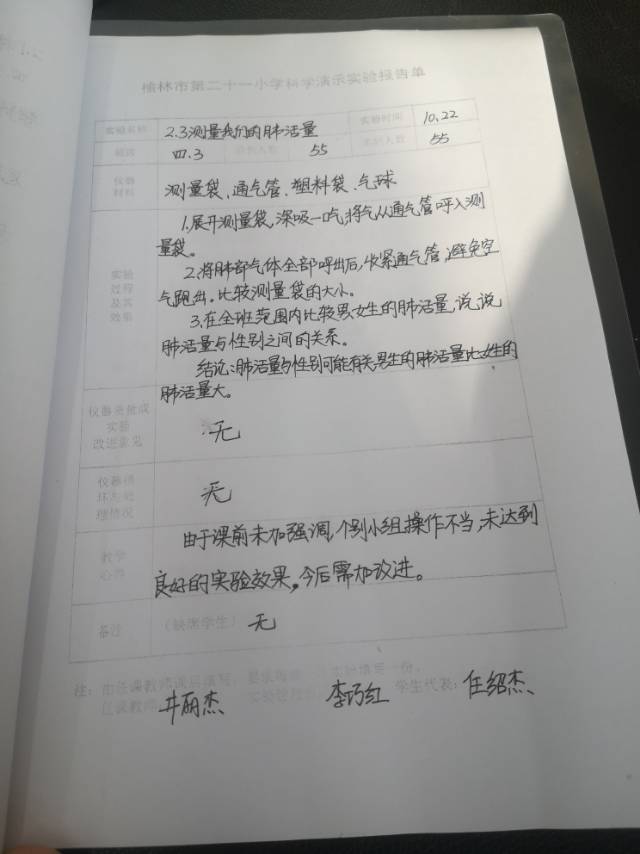 榆林市第二十一小学科学演示实验报告单
实验名称 2.3测量我们的肺活量 实验时间 10.22
四.3 55 人数 55
仪器材料 测量袋、通气管、塑料袋、气球
实验过程及其效果
1.展开测量袋,深吸一气,将气从通气管呼入测
量袋。
2.将肺部气体全部呼出后,收紧通气管,避免空
气跑出。比较测量袋的大小。
3.在全班范围内比较男女生的肺活量,说说
肺活量与性别之间的关系。
结论:肺活量与性别可能有关,男生的肺活量比女生的
肺活量大。
实验改进意见 无
无
由于课前未加强调,个别小组操作不当,未达到
良好的实验效果。今后需加改进。
备注 (缺席学生) 无
注:
任课教师 井丽杰 李巧红 学生代表:任绍杰